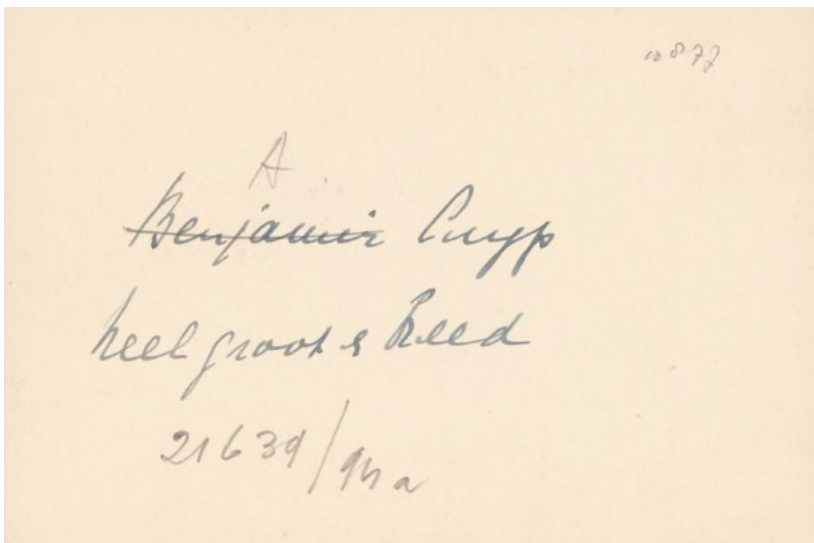 877
A.
Benjamin Cuyp
heel groot & breed
21639/